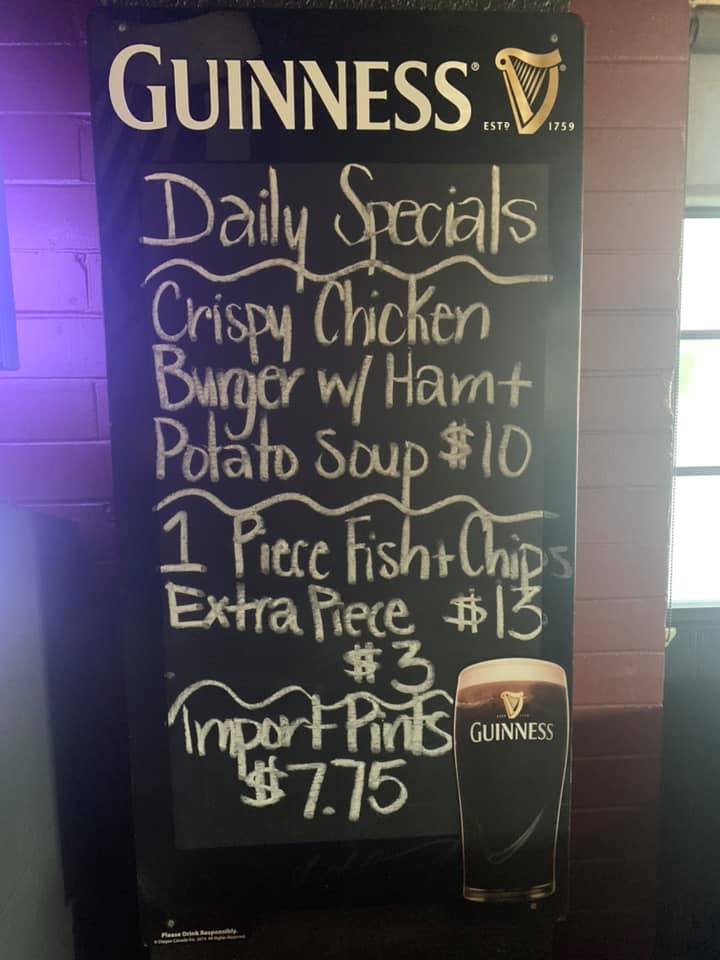 GUINNESS®
ESTD 1759
Daily Specials
Crispy Chicken
Burger w/ Ham +
Potato Soup $10
1 Piece Fish + Chips
Extra Piece $13
$3
Import Pints
$7.75
GUINNESS
Please Drink Responsibly.